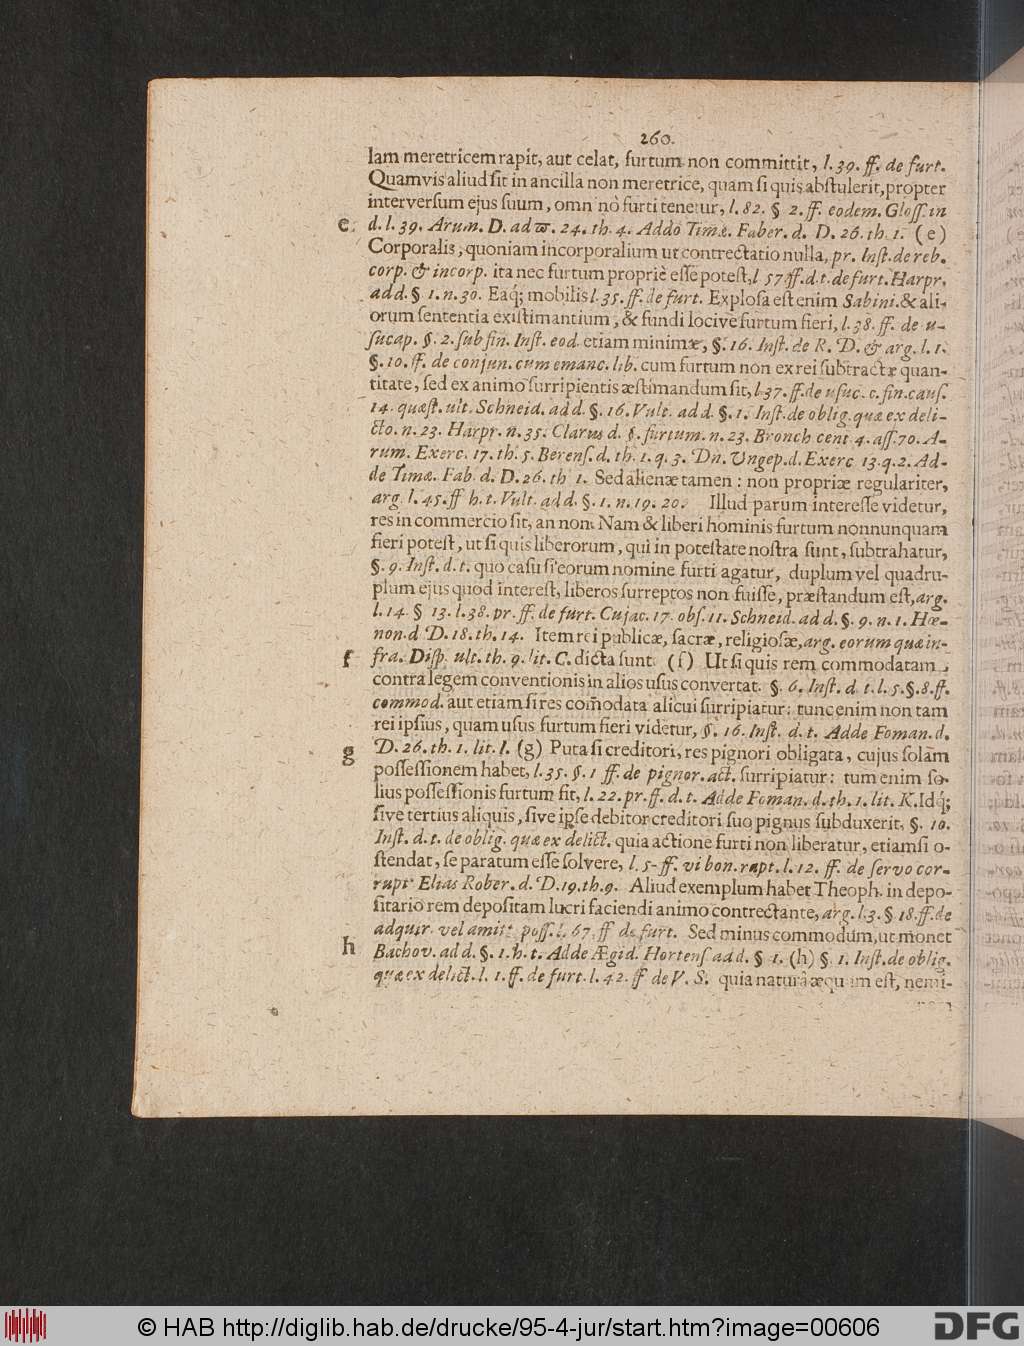 260.
lam meretricem rapit, aut celat, furtum non committit, l. 39. ff. de furt.
Quamvis aliud sit in ancilla non meretrice, quam si quis abstulerit, propter
interversum ejus suum, omninò furti tenetur, l. 82. § 2. ff. eodem. Gloss. in
e. d. l. 39. Arum. D. ad ϖ. 24. th. 4. Addo Timæ. Faber. d. D. 26. th. 1. (e)
Corporalis, quoniam incorporalium ut contrectatio nulla, pr. Inst. de reb.
corp. & incorp. ita nec furtum propriè esse potest, l 57 ff. d. t. de furt. Harpr.
ad d. § 1. n. 30. Eaq́; mobilis l. 35. ff. de furt. Explosa est enim Sabini. & ali-
orum sententia existimantium, & fundi locive furtum fieri, l. 38. ff. de u-
sucap. §. 2. sub fin. Inst. eod. etiam minimæ, §. 16. Inst. de R. D. & arg. l. 1.
§. 10. ff. de conjun. cum emanc. lib. cum furtum non ex rei subtractæ quan-
titate, sed ex animo surripientis æstimandum sit, l 37. ff. de usuc. c. fin. caus.
14. quæst. ult. Schneid. ad d. §. 16. Vult. ad d. §. 1. Inst. de oblig. quæ ex deli-
cto. n. 23. Harpr. n. 35. Clarus d. §. furtum. n. 23. Bronch cent 4. ass. 70. A-
rum. Exerc. 17. th. 5. Berens. d. th. 1. q. 3. Dn. Ungep. d. Exerc 13. q. 2. Ad-
de Timæ. Fab. d. D. 26. th 1. Sed alienæ tamen: non propriæ regulariter,
arg. l. 45. ff h. t. Vult. ad d. §. 1. n. 19. 20. Illud parum interesse videtur,
res in commercio sit, an non. Nam & liberi hominis furtum nonnunquam
fieri potest, ut si quis liberorum, qui in potestate nostra sunt, subtrahatur,
§. 9. Inst. d. t. quo casu si eorum nomine furti agatur, duplum vel quadru-
plum ejus quod interest, liberos surreptos non fuisse, præstandum est, arg.
l. 14. § 13. l. 38. pr. ff. de furt. Cujac. 17. obs. 11. Schneid. ad d. §. 9. n. 1. Hœ-
non. d D. 18. th. 14. Item rei publicæ, sacræ, religiosæ, arg. eorum quæ in-
f fra. Disp. ult. th. 9. lit. C. dicta sunt. (f) Ut si quis rem commodatam,
contra legem conventionis in alios usus convertat. §. 6. Inst. d. t. l. 5. §. 8. ff.
commod. aut etiam si res com̃odata alicui surripiatur: tunc enim non tam
rei ipsius, quam usus furtum fieri videtur, §. 16. Inst. d. t. Adde Foman. d.
g D. 26. th. 1. lit. I. (g) Puta si creditori, res pignori obligata, cujus solam
possessionem habet, l. 35. §. 1 ff. de pignor. act. surripiatur: tum enim so-
lius possessionis furtum fit, l. 22. pr. ff. d. t. Adde Foman. d. th. 1. lit. K. Idq́;
sive tertius aliquis, sive ipse debitor creditori suo pignus subduxerit, §. 10.
Inst. d. t. de oblig. quæ ex delict. quia actione furti non liberatur, etiamsi o-
stendat, se paratum esse solvere, l. 5. ff. vi bon. rapt. l. 12. ff. de servo cor-
rupt Elias Rober. d. D. 19. th. 9. Aliud exemplum habet Theoph. in depo-
sitario rem depositam lucri faciendi animo contrectante, arg. l. 3. § 18. ff. de
adquir. vel amitt. poss. l. 67. ff de furt. Sed minus commodum, ut monet
h Bachov. ad d. §. 1. h. t. Adde Ægid. Hortens ad d. § 1. (h) § 1. Inst. de oblig.
quæ ex delict. l. 1. ff. de furt. l. 42. ff de V. S. quia naturâ æquum est, nemi-
nem
© HAB http://diglib.hab.de/drucke/95-4-jur/start.htm?image=00606
DFG